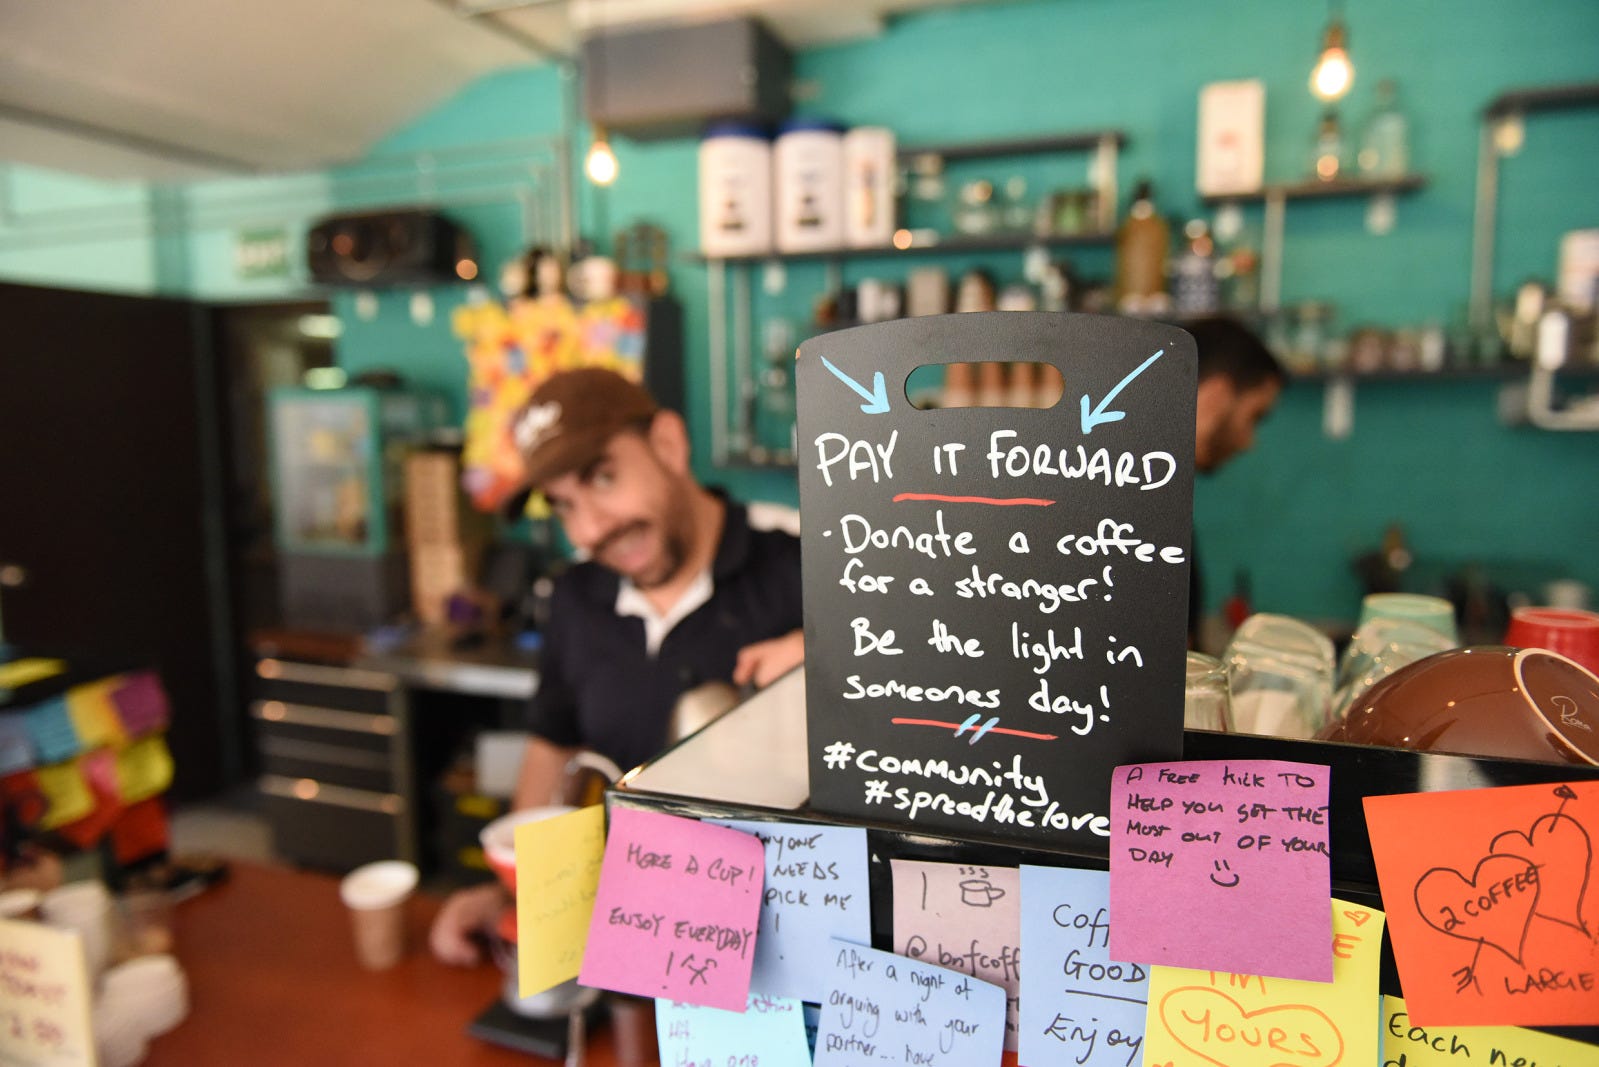 PAY IT FORWARD
· Donate a coffee
for a stranger!
Be the light in
someones day!
#community
#spreadthelove
A FREE KICK TO
HELP YOU GET THE
MOST OUT OF YOUR
DAY
HERE A CUP!
ENJOY EVERYDAY
!
NYONE
NEEDS
PICK ME
!
1
@bnfcoff
After a night of
arguing with your
partner... have
Hf.
Have one
Coff
GOOD
Enjoy
E
I'M
YOURS
2 COFFEE
LARGE
Each new